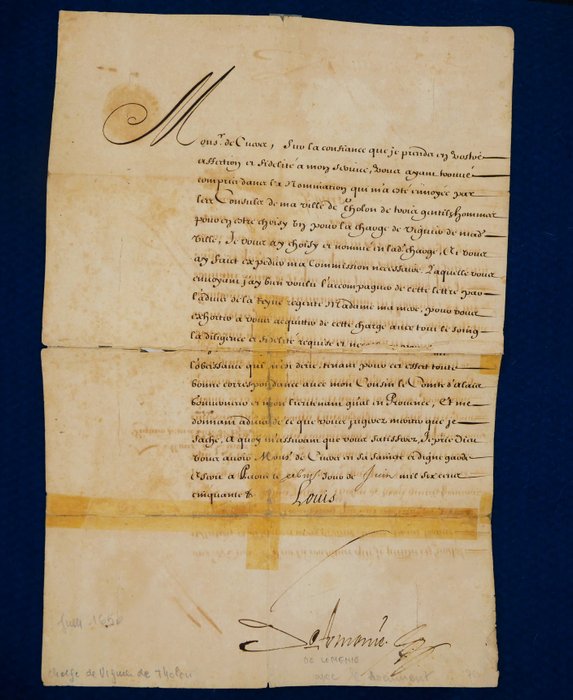 Mons.r de Cuers, Sur la confiance que je prends en vostre
affection et fidelité à mon service, Vous ayant trouvé
compris dans la Nomination qui m'a esté envoyée par
les Consuls de ma ville de Tholon de trois gentilshommes
pour en estre choisy un pour la charge de viguier de mad.
ville, Je vous ay choisy et nommé en lad. charge, Et vous
ay faict expedier ma Commission necessaire. Laquelle vous
envoyant j'ay bien voulu l'accompagner de cette lettre par
l'advis de la Reyne regente Madame ma mere, pour vous
exhorter à vous acquitter de cette charge avec tout le soing
la diligence et fidelité requise et
l'obeissance qui tenant pour cet effect toute
bonne correspondance avec mon Cousin le Comte d'alais
et mon lieutenant gnal en Provence, Et me
donnant advis de ce que vous jugerez meriter que je
sache, A quoy m'assurant que vous satisferez, Je prie Dieu
vous avoir Mons.r de Cuers en sa saincte et digne garde
Escrit à le jour de Juin mil six cens
cinquante &
Louis
De Lomenie
Juin 1650
DE LOMENIE
charge de Viguier de Tholon
avec le document